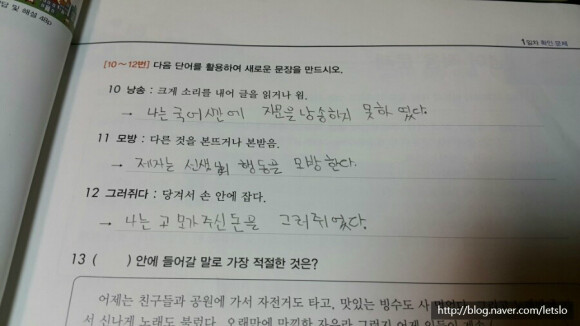 답 및 해설 48p
1일차 확인 문제
[10~12번] 다음 단어를 활용하여 새로운 문장을 만드시오.
10 낭송 : 크게 소리를 내어 글을 읽거나 욈.
→ 나는 국어 시간에 지문을 낭송하지 못하였다.
11 모방 : 다른 것을 본뜨거나 본받음.
→ 제자는 선생님의 행동을 모방한다.
12 그러쥐다 : 당겨서 손 안에 잡다.
→ 나는 고모가 주신 돈을 그러쥐었다.
13 ( ) 안에 들어갈 말로 가장 적절한 것은?
어제는 친구들과 공원에 가서 자전거도 타고, 맛있는 빙수도 사
서 신나게 노래도 불렀다. 오랜만에 만끽한 자유라 그런지 어제
http://blog.naver.com/letslo